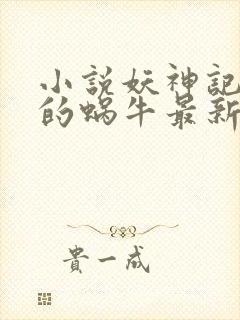 小說妖神記
的蝸牛最新
貴一成